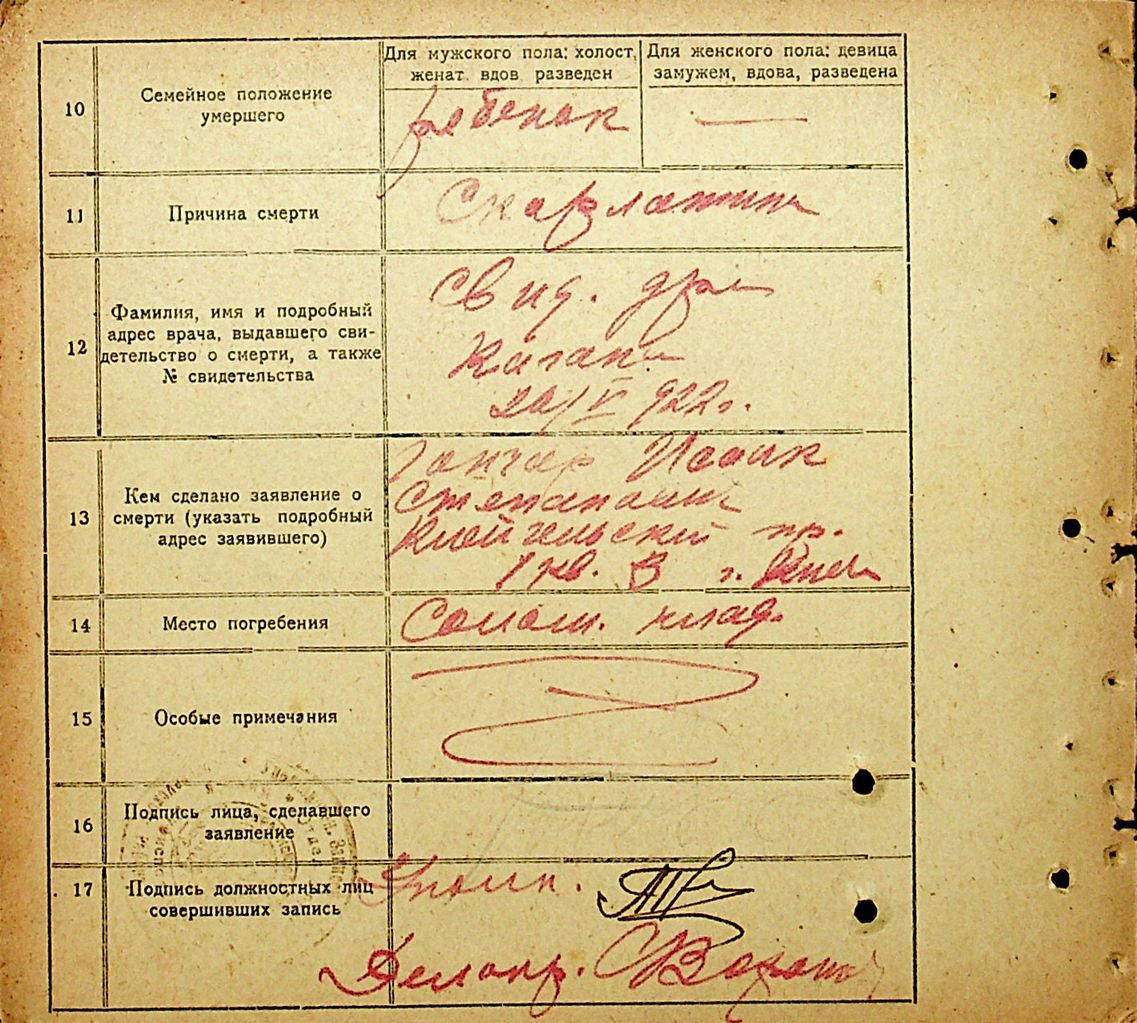 10
Семейное положение
умершего
Для мужского пола: холост,
женат вдов разведен
Для женского пола: девица
замужем, вдова, разведена
ребенок
—
11
Причина смерти
Скарлатина
12
Фамилия, имя и подробный
адрес врача, выдавшего сви-
детельство о смерти, а также
№ свидетельства
свид. д-ра
Кагана
20/V 922 г.
13
Кем сделано заявление о
смерти (указать подробный
адрес заявившего)
Гончар Исаак
Степанович
пр.
1 кв. 3 г.
14
Место погребения
Солом. клад.
15
Особые примечания
16
Подпись лица, сделавшего
заявление
17
Подпись должностных лиц
совершивших запись
Уполн.
Делопр.